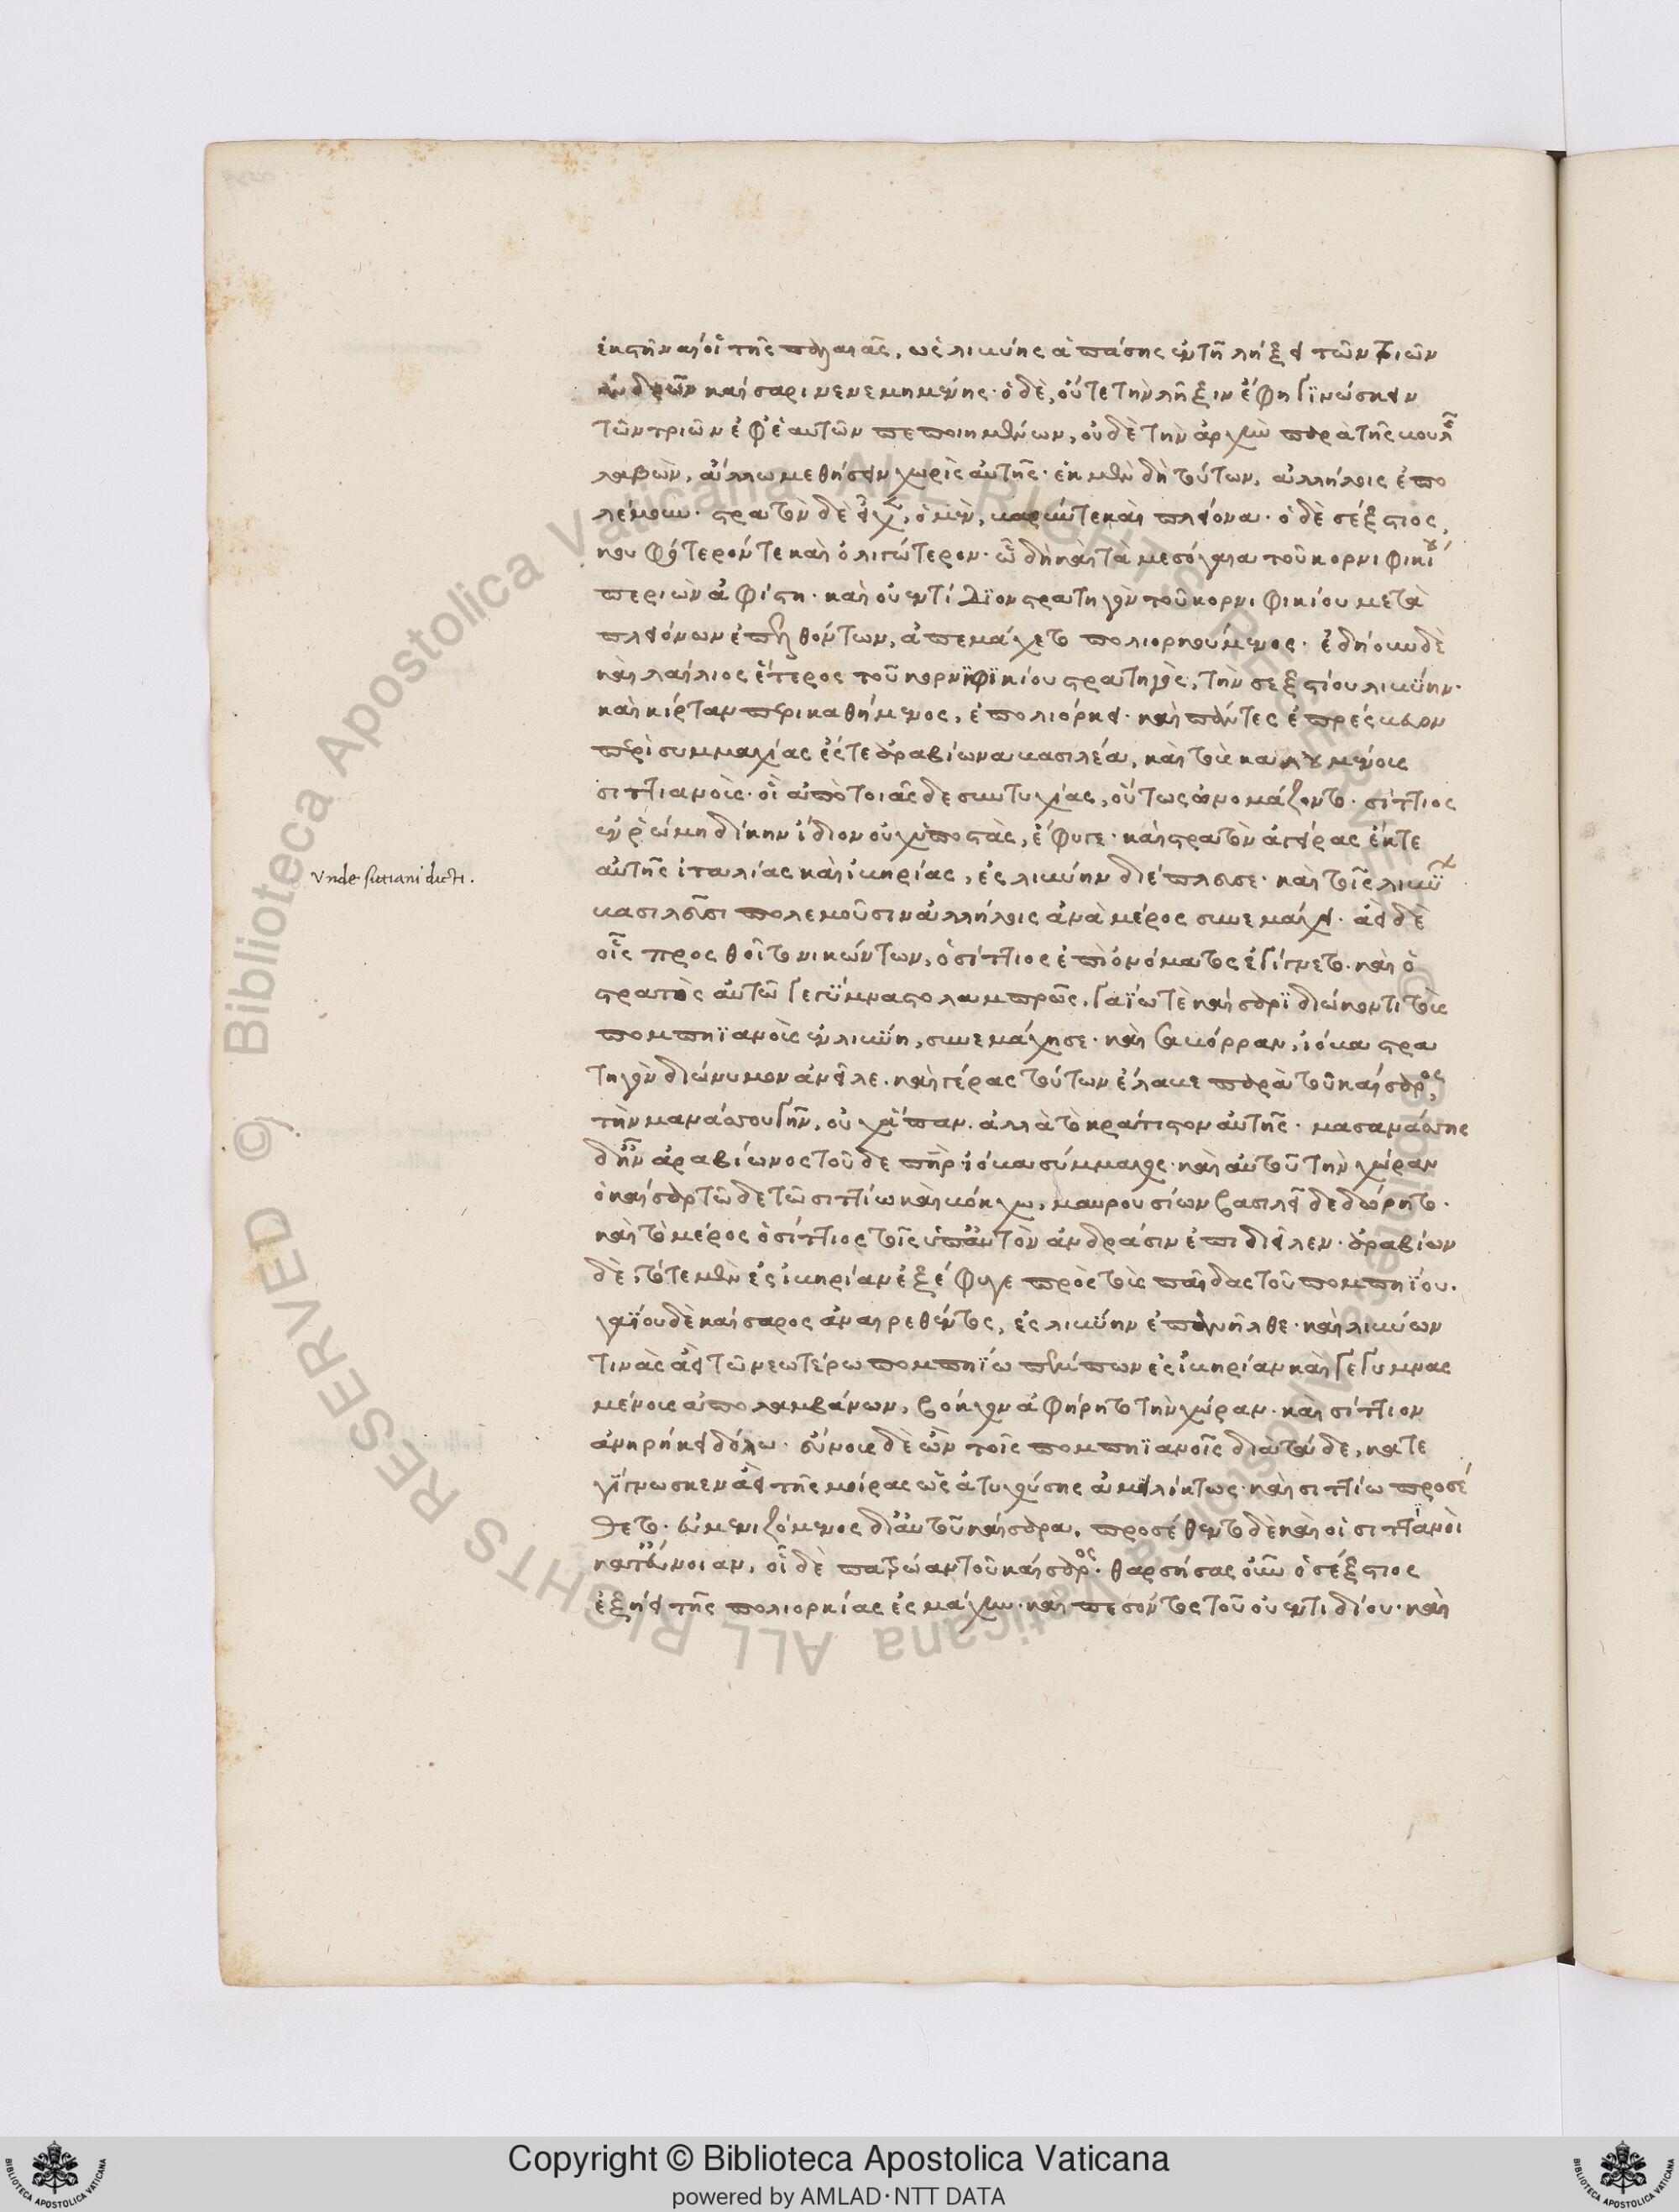 ἐκστῆναί οἱ τῆς παλαιᾶς, ὡς λιβύης ἁπάσης ἐν τῇ λήξει τῶν τριῶν
ἀνδρῶν καίσαρι νενεμημένης· ὁ δὲ, οὔτε τὴν λῆξιν ἔφη γϊνώσκειν
τῶν τριῶν ἐφ' ἑαυτῶν πεποιημένων, οὐδὲ τὴν ἀρχὴν παρὰ τῆς βουλῆς
λαβὼν, ἄλλω μεθήσειν χωρὶς αὐτῆς· ἐκ μὲν δὴ τούτων, ἀλλήλοις ἐπο
λέμουν· στρατὸν δὲ εἶχον, ὁ μὲν, βαρύν τε καὶ πλείονα· ὁ δὲ σέξστιος,
κουφότερόν τε καὶ ὀλιγώτερον· ὧ δὴ καὶ τὰ μεσόγαια τοῦ κορνιφικίου
περιὼν ἀφίστη· καὶ οὐεντίδϊον στρατηγὸν τοῦ κορνιφικίου μετὰ
πλειόνων ἐπελθόντων, ἀπεμάχετο πολιορκούμενος· ἐδήου δὲ
καὶ λαίλιος ἕτερος τοῦ κορνϊφϊκίου στρατηγὸς, τὴν σεξστίου λιβύην·
καὶ κίρταν περικαθήμενος, ἐπολιόρκει· καὶ πάντες ἐπρέσβευον
περὶ συμμαχίας ἔς τε ἀραβίωνα βασιλέα, καὶ τοὺς καλουμένους
σιττιανούς· οἳ ἀπὸ τοιᾶσδε συντυχίας, οὕτως ὠνομάζοντο· σίττιος
ἐν ῥώμη δίκην ἴδιον οὐχ ὑποστὰς, ἔφυγε· καὶ στρατὸν ἀγείρας ἔκ τε
αὐτῆς ἰταλίας καὶ ἰβηρίας, ἐς λιβύην διέπλευσε· καὶ τοῖς λιβύων
Vnde sittiani dicti.
βασιλεῦσι πολεμοῦσιν ἀλλήλοις ἀνὰ μέρος συνεμάχει· ἀεὶ δὲ
οἷς προσθοῖτο νικώντων, ὁ σίττιος ἐπὶ ὀνόματος ἐγίγνετο· καὶ ὁ
στρατὸς αὐτῶ γεγύμναστο λαμπρῶς· γαΐω τὲ καίσαρϊ διώκοντι τοὺς
πομπηϊανοὺς ἐν λιβύη, συνεμάχησε· καὶ σαβόρραν, ἰόβα στρα
τηγὸν διώνυμον ἀνεῖλε· καὶ γέρας τούτων ἔλαβε παρὰ τοῦ καίσαρος,
τὴν μασανάσσου γῆν, οὐχ ἅπαν· ἀλλὰ τὸ κράτιστον αὐτῆς· μασανάσσης
δ' ἦν ἀραβίωνος τοῦδε πὴρ ἰόβα σύμμαχος· καὶ αὐτοῦ τὴν χώραν
ὁ καίσαρ τῶδε τῶ σιττίω καὶ βόκχω, μαυρουσίων βασιλεῖ δεδώρητο·
καὶ τὸ μέρος ὁ σίττιος τοῖς ὑπ' αὐτὸν ἀνδράσιν ἐπιδιεῖλεν· ἀραβίων
δὲ, τότε μὲν ἐς ἰβηρίαν ἐξέφυγε πρὸς τοὺς παῖδας τοῦ πομπηΐου·
γαΐου δὲ καίσαρος ἀναιρεθέντος, ἐς λιβύην ἐπανῆλθε· καὶ λιβύων
τινὰς ἀεὶ τῶ νεωτέρω πομπηΐω πέμπων ἐς ἰβηρίαν καὶ γεγυμνασ
μένους ἀπολαμβάνων, βόκχον ἀφήρητο τὴν χώραν· καὶ σίττιον
ἀνηρήκει δόλω· εὔνους δὲ ὢν τοῖς πομπηϊανοῖς διὰ τάδε, κατε
γίγνωσκεν ἀεὶ τῆς μοίρας ὡς ἀτυχούσης ἀμειλίκτως· καὶ σιττίω προσέ
θετο· εὐμενιζόμενος δι' αὐτοῦ καίσαρα, προσέθεντο δὲ καὶ οἱ σιττιανοὶ
κατ' εὔνοιαν, οἵδε πατρώαν τοῦ καίσαρος· θαρσήσας οὖν ὁ σέξστιος
ἐξήει τῆς πολιορκίας ἐς μάχην· καὶ πεσόντος τοῦ οὐεντιδίου· καὶ
© Biblioteca Apostolica Vaticana ALL RIGHTS RESERVED
Copyright © Biblioteca Apostolica Vaticana
powered by AMLAD·NTT DATA